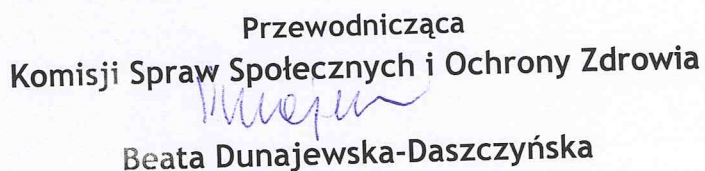 Przewodnicząca
Komisji Spraw Społecznych i Ochrony Zdrowia
Beata Dunajewska-Daszczyńska